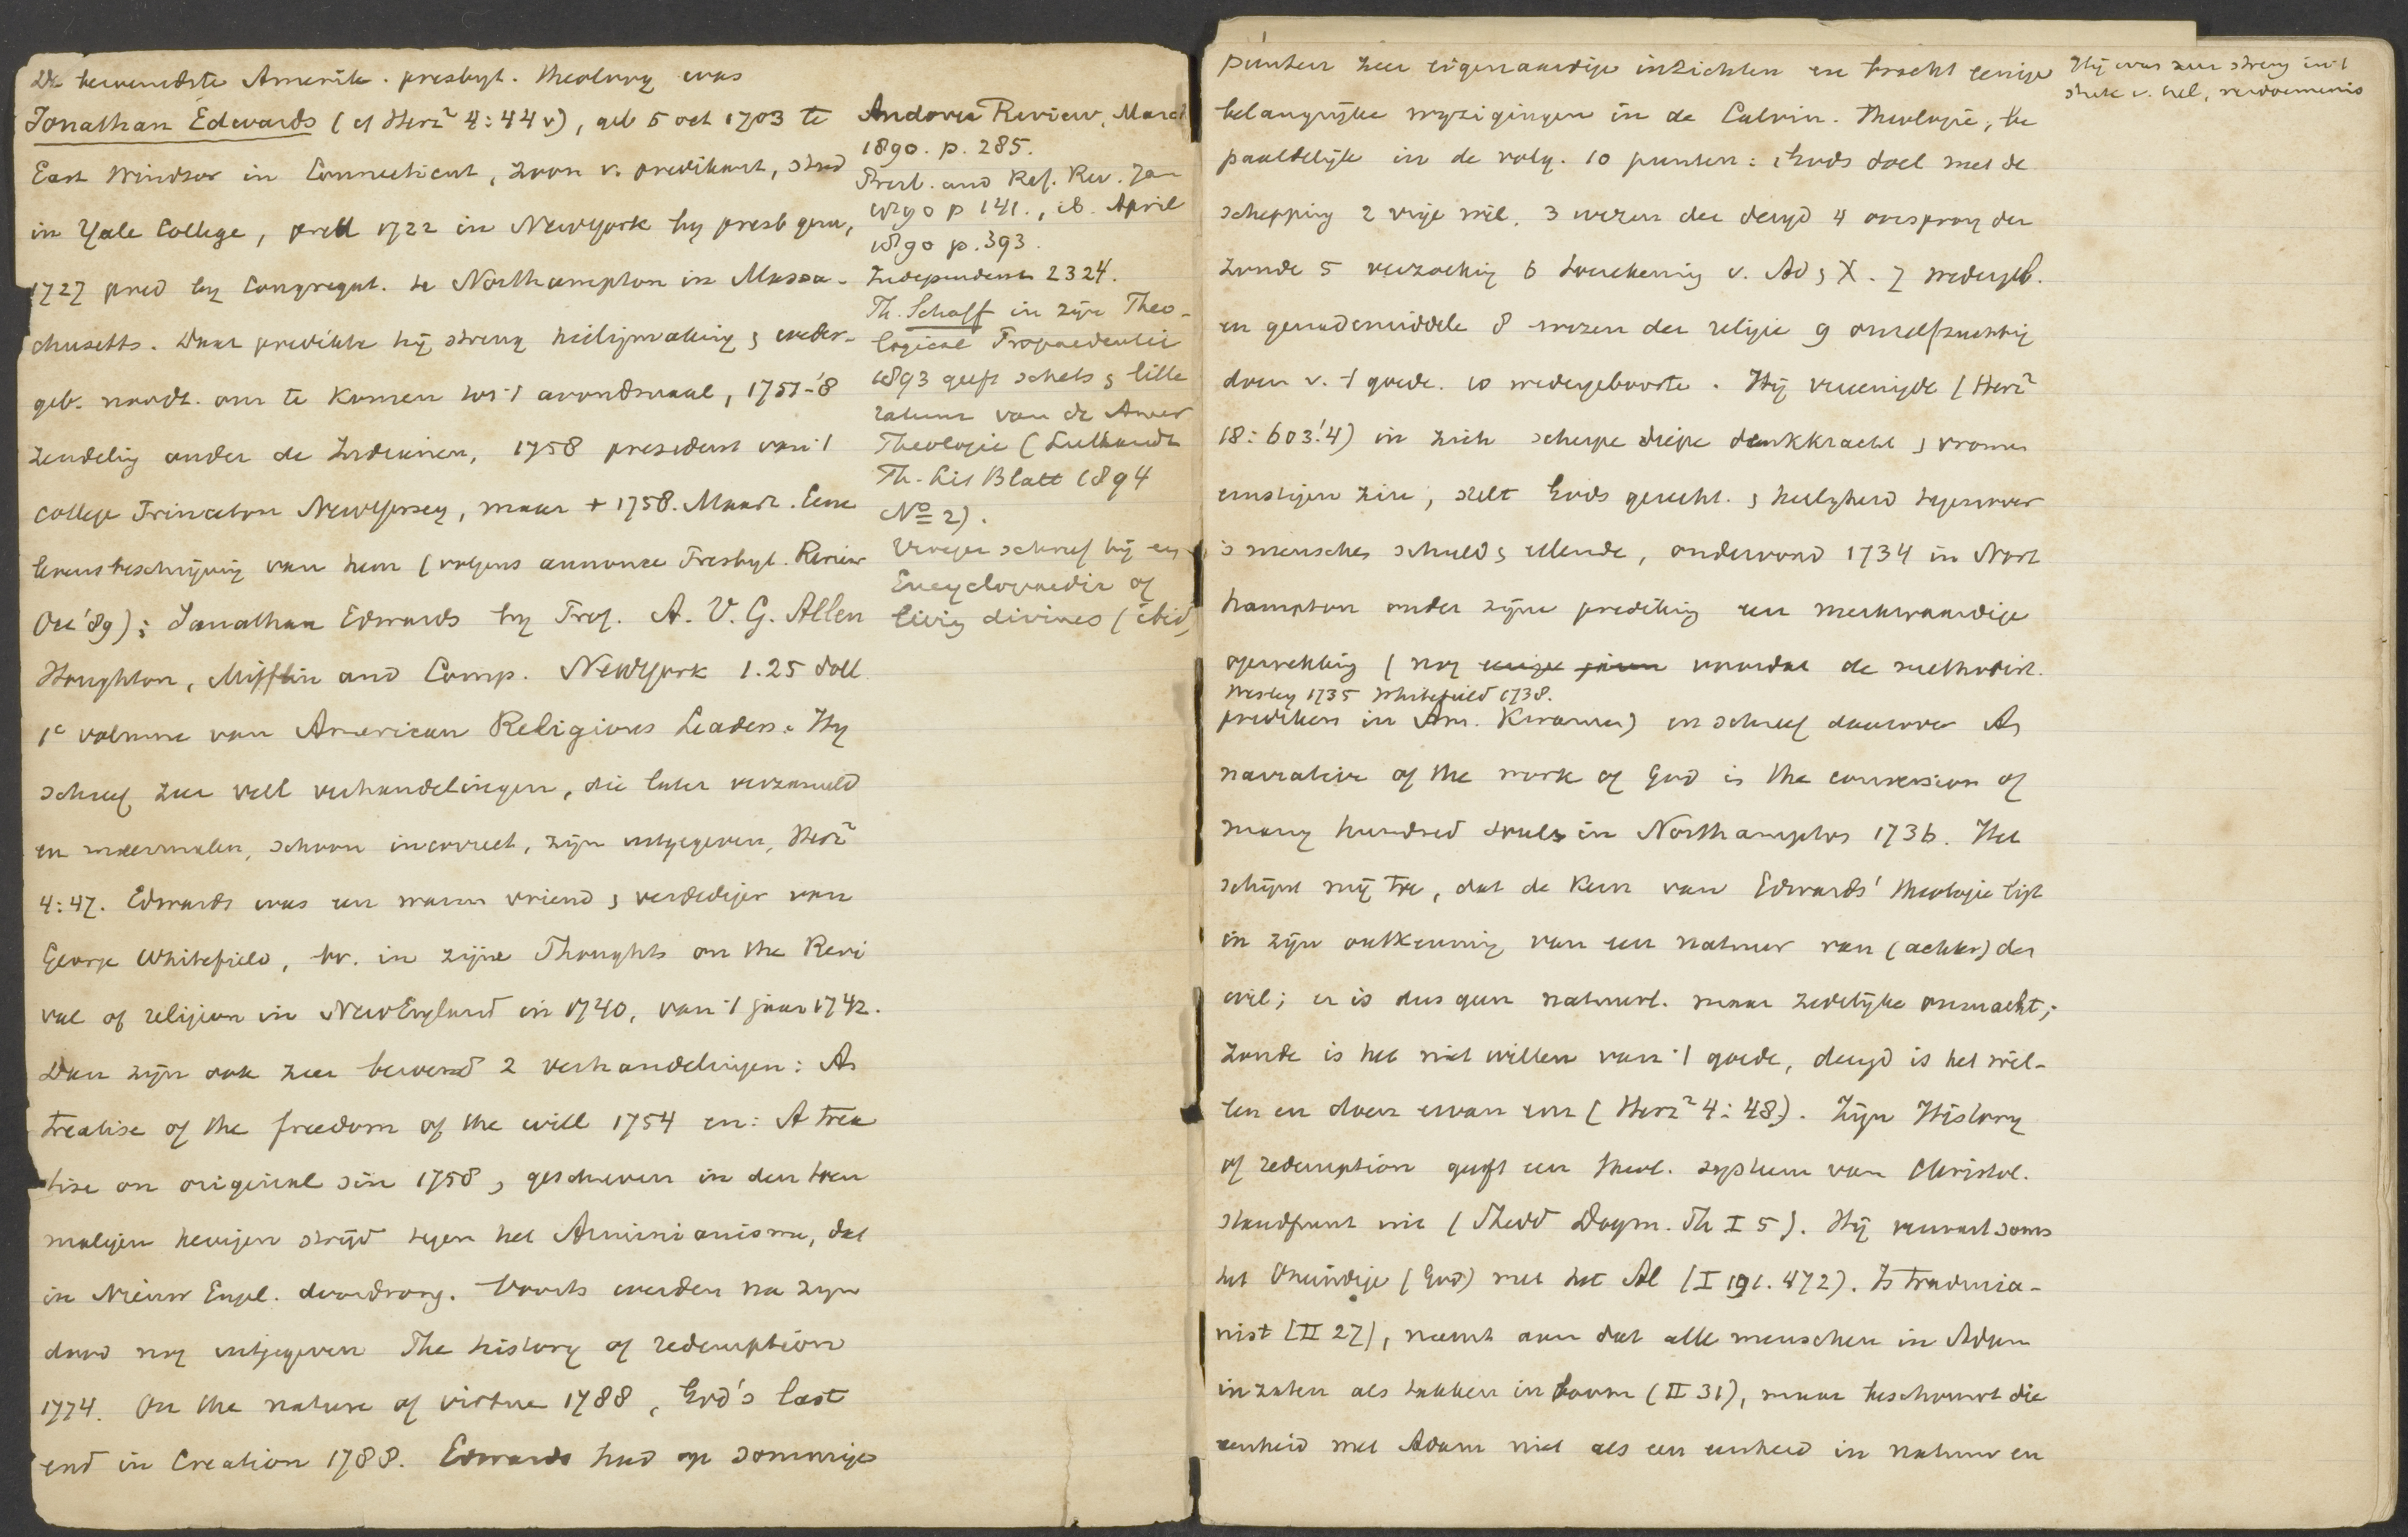 De beroemdste Amerik. presbyt. theoloog was
Jonathan Edwards (cf Herz² 4:44 v), geb 5 oct 1703 te
East Windsor in Connecticut, zoon v. predikant, stud
in Yale College, pred 1722 in NewYork by presb gem,
1727 pred by Congregat. te Northampton in Massa-
chusetts. Daar predikte hij streng heiligmaking & weder-
geb. noodz. om te komen tot 't avondmaal, 1751-'8
zendeling onder de Indianen, 1758 president van 't
college Princeton NewYersey, maar + 1758. Maart. Eene
levensbeschrijving van hem (volgens annonce Presbyt. Review
Oct '89): Jonathan Edwards by Prof. A. V. G. Allen
Houghton, Mifflin and Comp. NewYork 1.25 doll
1e volume van American Religious Leaders. Hy
schreef zeer veel verhandelingen, die later verzameld
en meermalen, schoon incorrect, zijn uitgegeven, Herz²
4:47. Edwards was een warm vriend & verdediger van
George Whitefield, bv. in zijne Thoughts on the Revi
val of religion in NewEngland in 1740, van 't jaar 1742.
Dan zijn ook zeer beroemd 2 verhandelingen: A
treatise of the freedom of the will 1754 en: A trea
tise on original sin 1758, geschreven in den toen
maligen hevigen strijd tegen het Arminianisme, dat
in Nieuw Engel. doordrong. Voorts werden na zyn
dood nog uitgegeven The history of redemption
1774. On the nature of virtue 1788, God's last
end in Creation 1788. Edwards had op sommige
Andover Review, March
1890. p. 285.
Presb. and Ref. Rev. Jan
1890 p 141., ib. April
1890 p. 393.
Independent 2324.
Ph. Schaff in zijn Theo-
logical Propaedeutic
1893 geeft schets & litte
ratuur van de Amer
Theologie (Luthardt
Th. Lit Blatt 1894
No 2).
Vroeger schreef hij
Encyclopaedie of
living divines (ibid)
punten zeer eigenaardige inzichten en bracht eenige
belangrijke wyzigingen in de Calvin. Theologie, be
paaldelijk in de volg. 10 punten: 1 Gods doel met de
schepping 2 vrije wil. 3 wezen der deugd 4 oorsprong der
zonde 5 verzoening 6 toerekening v. Ad & X. 7 wedergeb.
en genademiddelen 8 wezen der religie 9 onzelfzuchtig
doen v. 't goede. 10 wedergeboorte. Hij vereenigde (Herz²
18:603.'4) in zich scherpe diepe denkkracht & vromen
ernstigen zin, stelt Gods gerecht. & heiligheid tegenover
's menschen schuld & ellende, ondervond 1734 in Nort
hampton onder zijne prediking een merkwaardige
opwekking (nog voordat de methodist.
Wesley 1735 Whitefield 1738.
predikers in Am. kwamen) en schreef daarover A
narrative of the work of God is the conversion of
many hundred souls in Northampton 1736. Het
schijnt mij toe, dat de kern van Edwards' theologie ligt
in zijn ontkenning van een natuur van (achter) den
wil; er is dus geen natuurl. maar zedelijke onmacht;
zonde is het niet willen van 't goede, deugd is het wil-
len en doen ervan enz (Herz² 4:48). Zijn History
of redemption geeft een theol. systeem van Christol.
standpunt uit (Shedd Dogm. Th I 5). Hij verwart soms
het Oneindige (God) met het Al (I 191. 472). Is traducia-
nist (II 27), neemt aan dat alle menschen in Adam
inzaten als takken in boom (II 31), maar beschouwt die
eenheid met Adam niet als een eenheid in natuur en
Hij was zeer streng in 't
stuk v. hel, verdoemenis